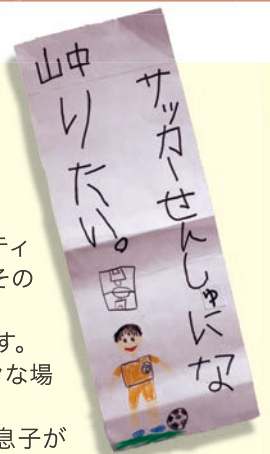 サッカーせんしゅにな
りたい。
山中
ティ
その
す。
な場
息子が